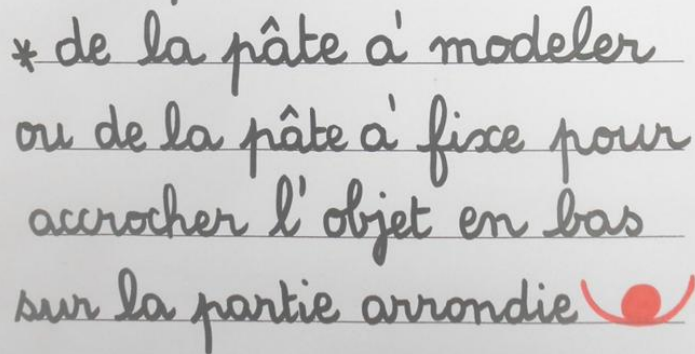 * de la pâte à modeler
ou de la pâte à fixe pour
accrocher l'objet en bas
sur la partie arrondie